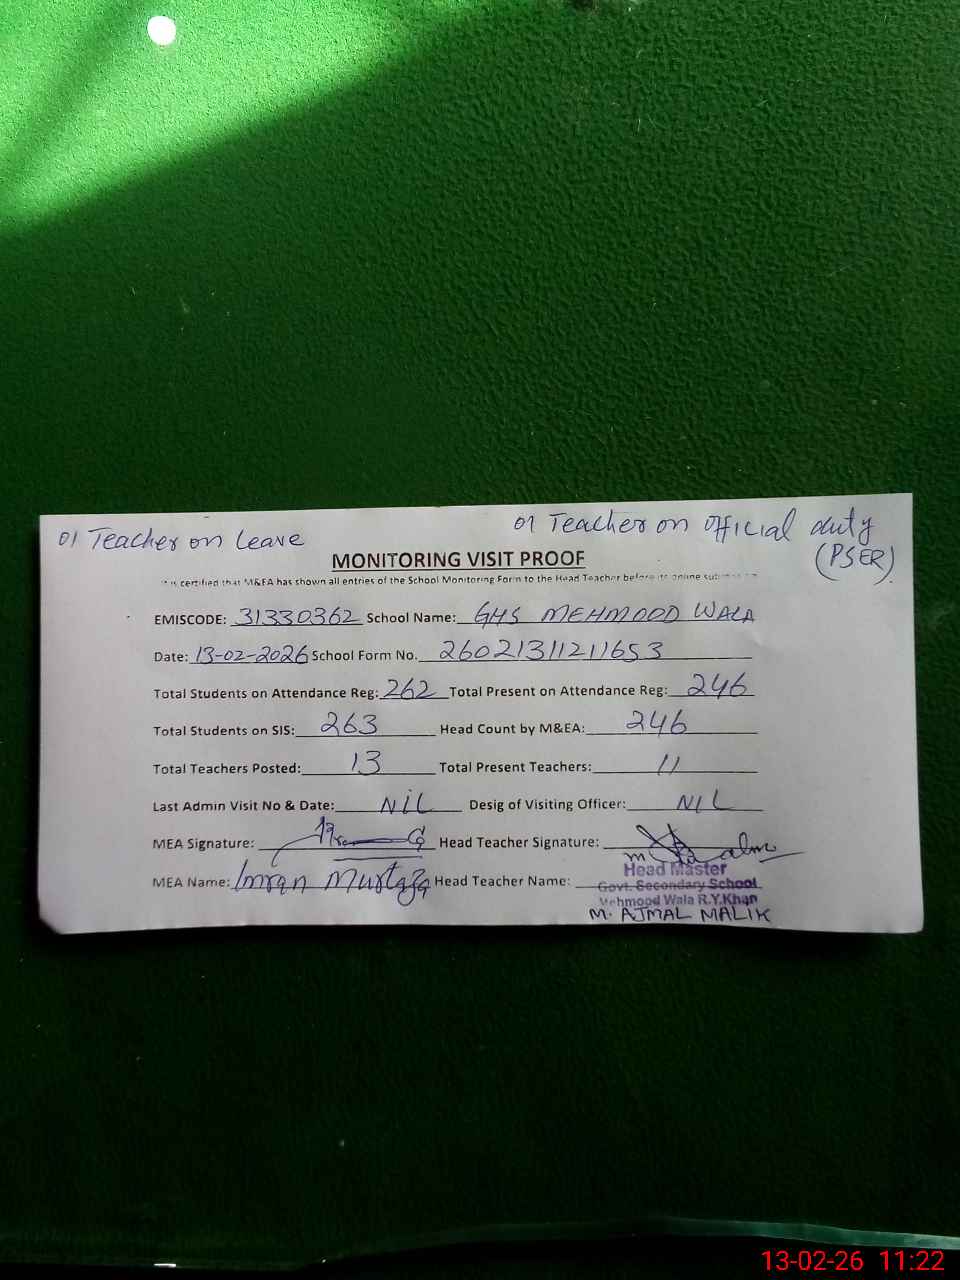 01 Teacher on Leave
01 Teacher on Official duty
(PSER)
MONITORING VISIT PROOF
It is certified that M&EA has shown all entries of the School Monitoring Form to the Head Teacher before its online
EMISCODE: 31330362 School Name: GHS MEHMOOD WALA
Date: 13-02-2026 School Form No. 26021311211653
Total Students on Attendance Reg: 262 Total Present on Attendance Reg: 246
Total Students on SIS: 263 Head Count by M&EA: 246
Total Teachers Posted: 13 Total Present Teachers: 11
Last Admin Visit No & Date: NIL Desig of Visiting Officer: NIL
MEA Signature: Head Teacher Signature:
MEA Name: Imran Murtaza Head Teacher Name:
Head Master
Govt. Secondary School
Mehmood Wala R.Y.Khan
M. AJMAL MALIK
13-02-26 11:22